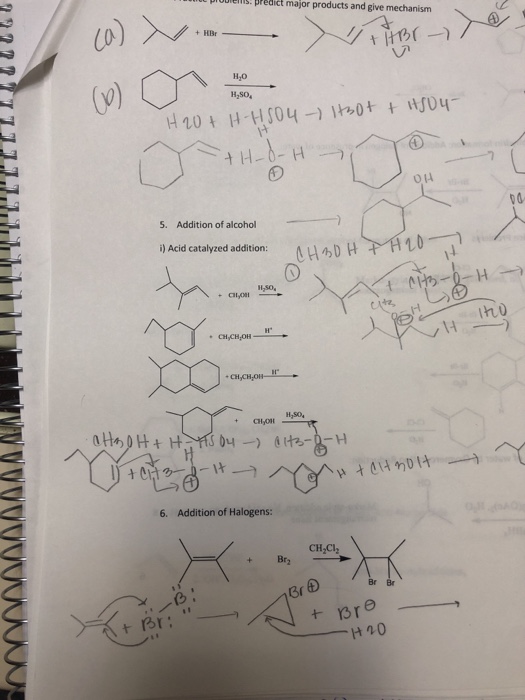 predict major products and give mechanism
(a) + HBr + HBr →
(b) H₂O
H₂SO₄
H2O + H-HSO4 → H3O+ + HSO4-
H
+ H-O-H →
OH
5. Addition of alcohol
i) Acid catalyzed addition: CH3OH + H2O →
① H
+ CH₃OH H₂SO₄ + CH3-O-H →
CH3
H H2O
+ CH₃CH₂OH H⁺ H
+ CH₃CH₂OH H⁺
+ CH₃OH H₂SO₄
CH3OH + H-HSO4 → CH3-O-H
H
+ CH3-O-H → H + CH3OH →
6. Addition of Halogens:
+ Br₂ CH₂Cl₂
Br Br
Br⊕
+ Br: + Br⊖
H2O